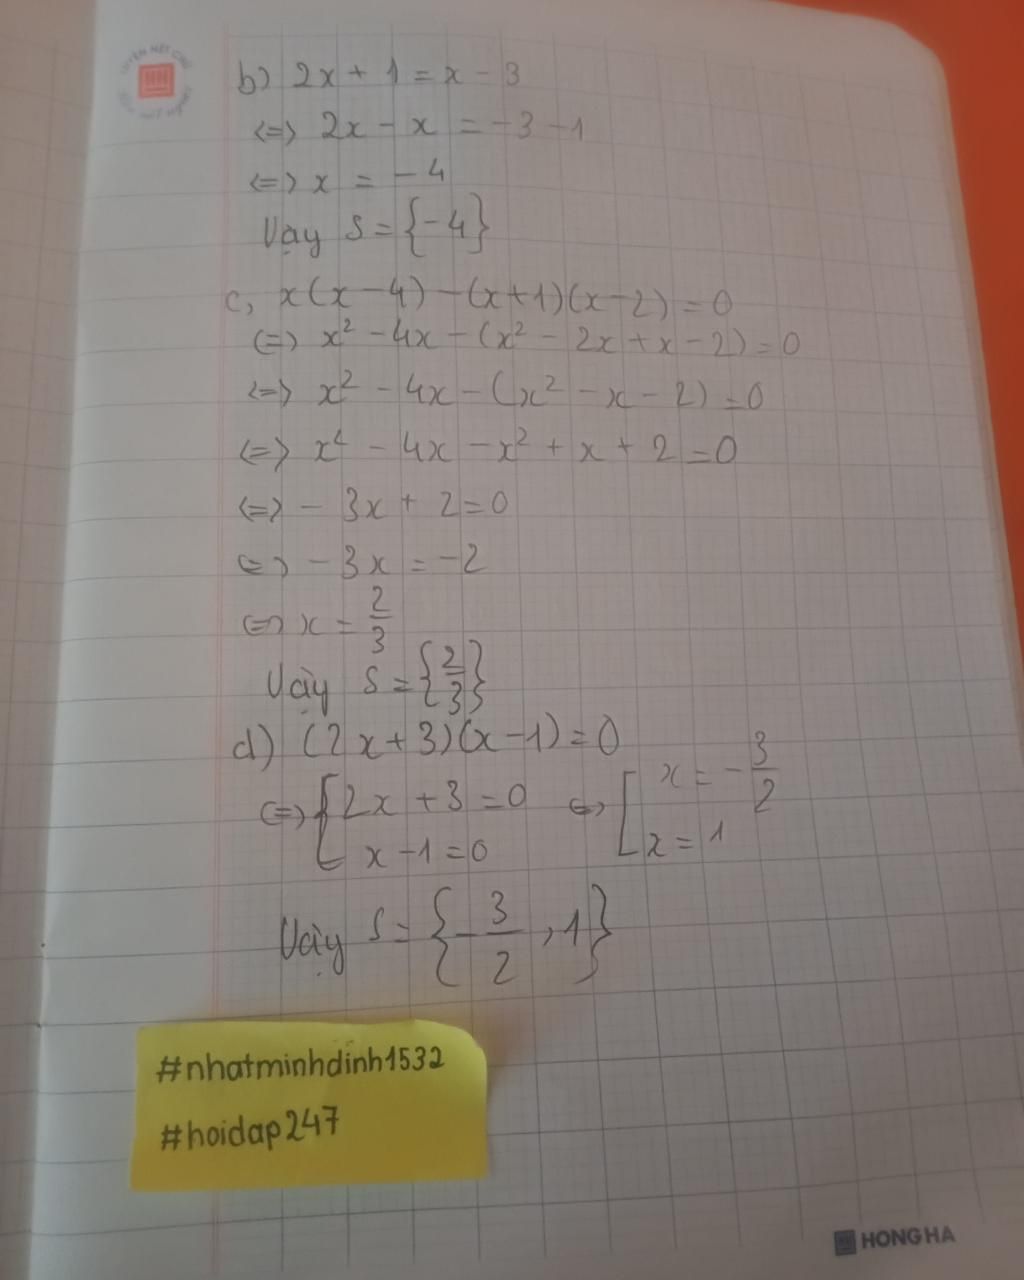 b) 2x + 1 = x - 3
<=> 2x - x = -3 - 1
<=> x = -4
Vạy S = {-4}
c, x(x - 4) - (x + 1)(x - 2) = 0
<=> x² - 4x - (x² - 2x + x - 2) = 0
<=> x² - 4x - (x² - x - 2) = 0
<=> x² - 4x - x² + x + 2 = 0
<=> - 3x + 2 = 0
<=> - 3x = -2
<=> x = 2/3
Vậy S = {2/3}
d) (2x + 3)(x - 1) = 0
<=> [2x + 3 = 0 <=> [x = -3/2
x - 1 = 0 x = 1
Vậy S = {-3/2, 1}
#nhatminhdinh1532
#hoidap247
HONG HA